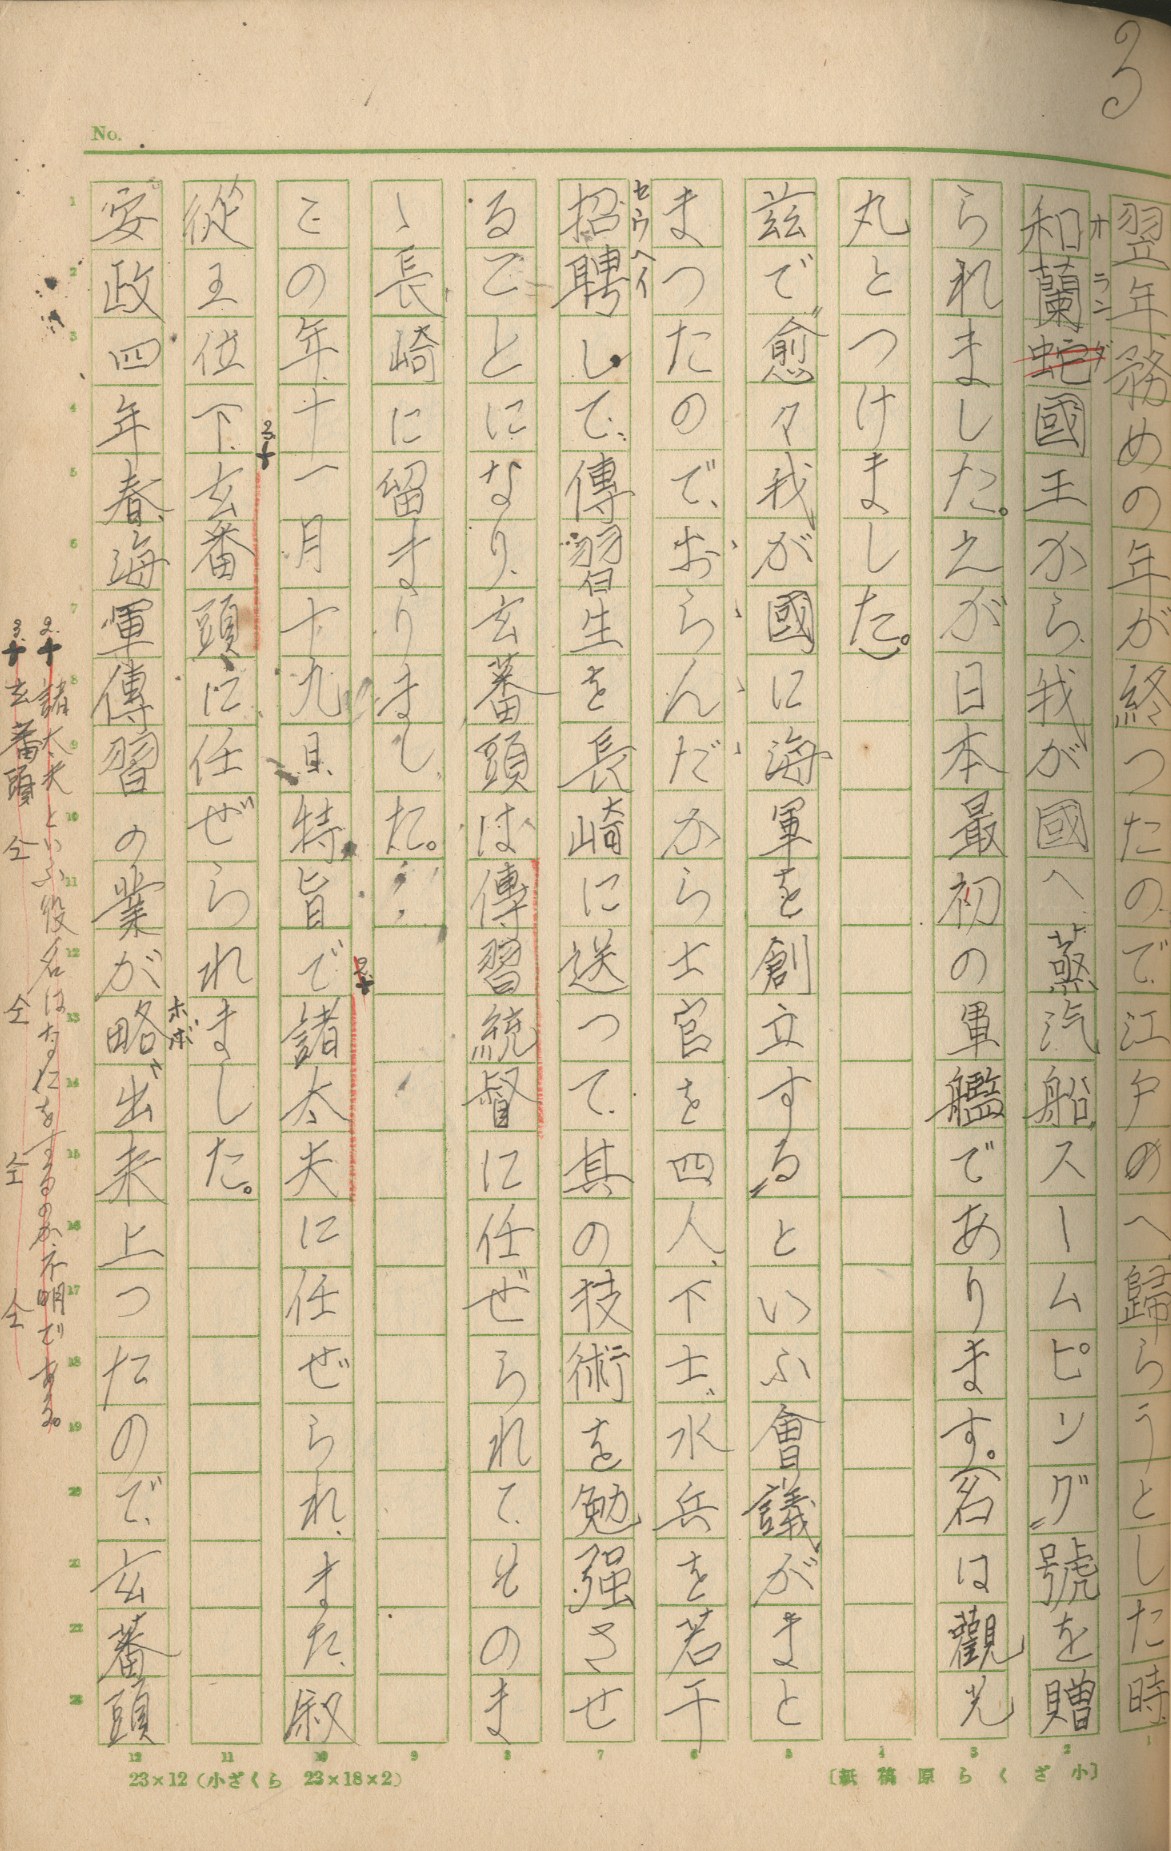 3
No.
翌年、務めの年が終つたので江戸のへ、歸らうとした時、
和蘭蛇國王から、我が國へ、蒸汽船スームピング號を贈
オランダ
られました。之が日本最初の軍艦であります。(名は觀光
丸とつけました。)
茲で愈々我が國に海軍を創立するといふ會議がまと
まつたので、おらんだから士官を四人、下士、水兵を若干
招聘して、傳習生を長崎に送つて、其の技術を勉强させ
セウヘイ
ることになり、玄蕃頭は傳習統督に任ぜられて、そのま
ゝ長崎に留まりました。
この年、十一月十九日、特旨で諸太夫に任ぜられ、また、叙
2.
從五位下、玄番頭に任ぜられました。
3.
安政四年春、海軍傳習の業が略〻出来上つたので、玄蕃頭
ホボ
2. 諸太夫といふ役名はなにをするのか不明である。
3. 玄番頭 仝 仝 仝 仝
1 2 3 4 5 6 7 8 9 10 11 12 13 14 15 16 17 18 19 20 21 22 23
1 2 3 4 5 6 7 8 9 10 11 12
23×12（小ざくら 23×18×2）
〔小ざくら原稿紙〕